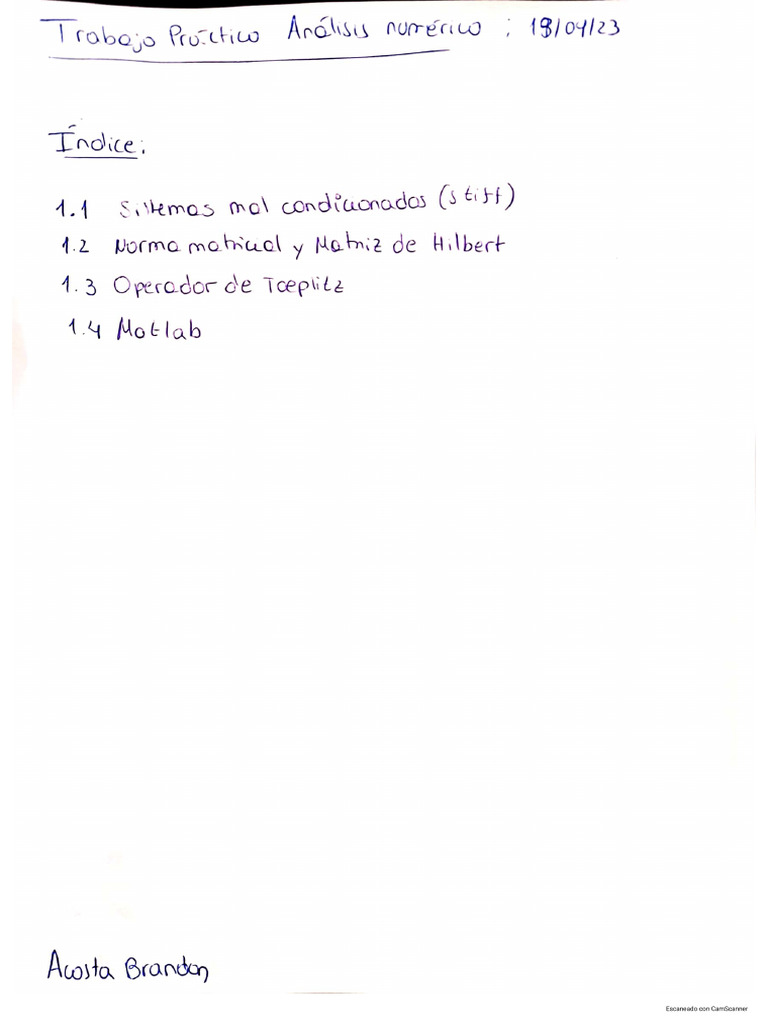 Trabajo Práctico Análisis numérico ; 19/04/23
Índice:
1.1 Sistemas mal condicionados (stiff)
1.2 Norma matricial y Matriz de Hilbert
1.3 Operador de Toeplitz
1.4 Matlab
Acosta Brandon
Escaneado con CamScanner